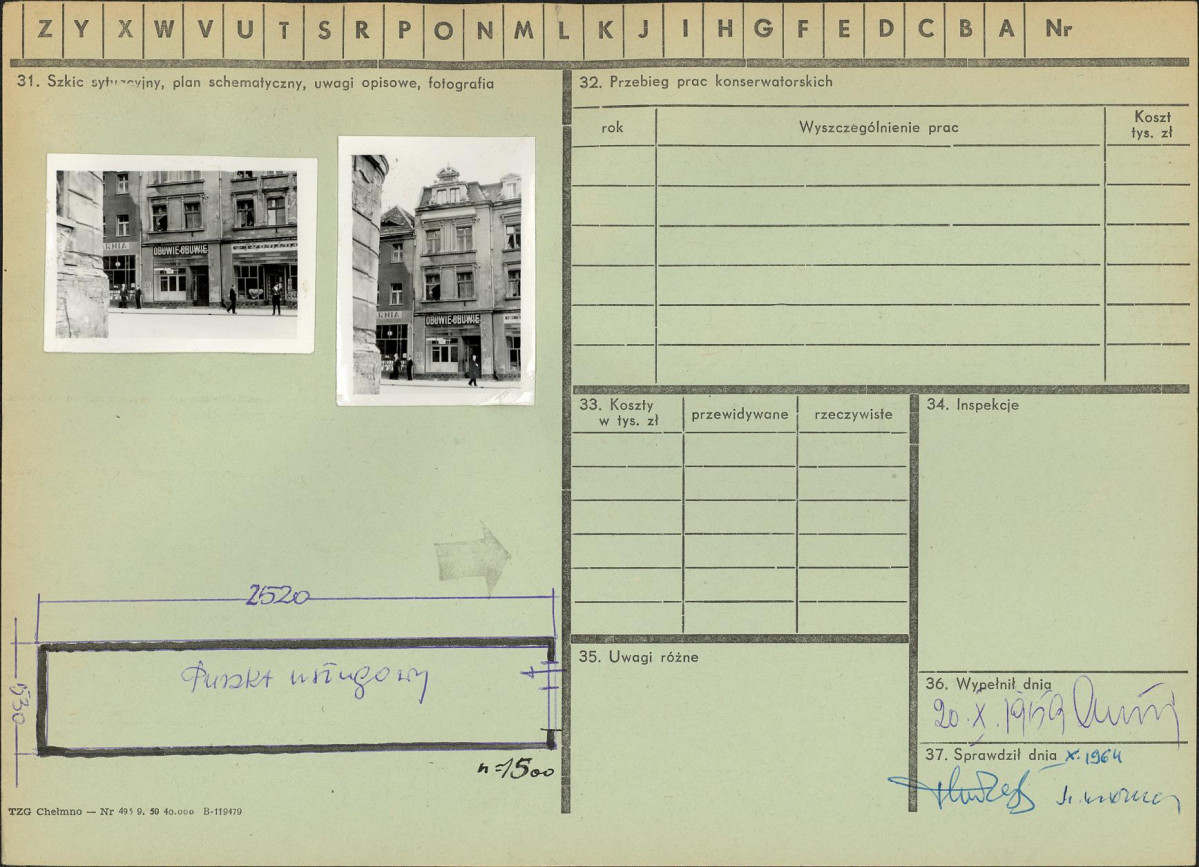 Z Y X W V U T S R P O N M L K J I H G F E D C B A Nr
31. Szkic sytuacyjny, plan schematyczny, uwagi opisowe, fotografia
OBUWIE-OBUWIE
RNIA
OBUWIE-OBUWIE
RNIA
2520
530
Punkt usługowy
n=1500
TZG Chełmno — Nr 495 9. 50 40.000 B-119479
32. Przebieg prac konserwatorskich
rok
Wyszczególnienie prac
Koszt
tys. zł
33. Koszty
w tys. zł
przewidywane
rzeczywiste
34. Inspekcje
35. Uwagi różne
36. Wypełnił dnia
20.X.1959
37. Sprawdził dnia X.1964